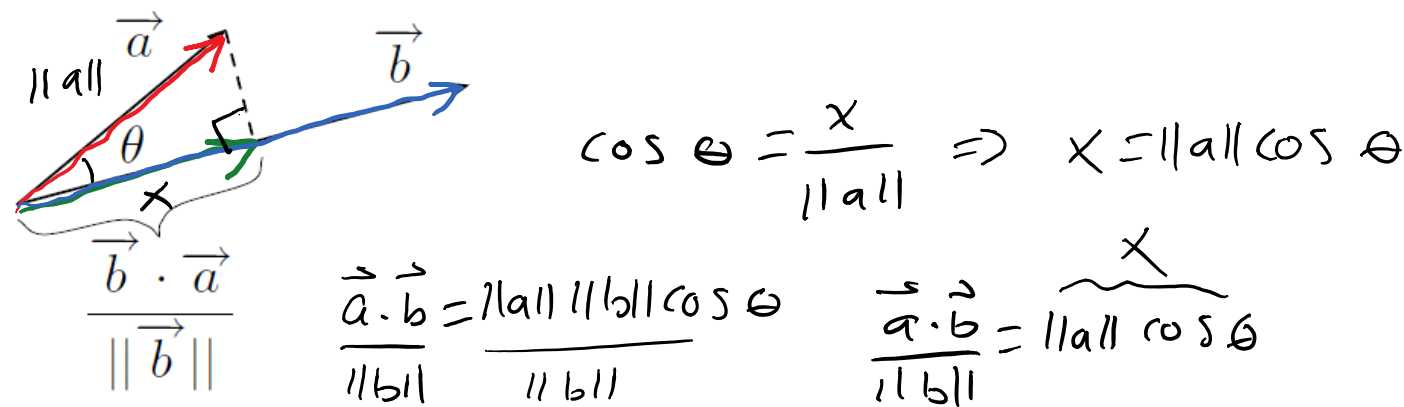 →a
→b
||a||
θ
x
→b · →a / ||→b||
cos θ = x / ||a|| ⇒ x = ||a|| cos θ
→a · →b / ||b|| = ||a|| ||b|| cos θ / ||b||
x
→a · →b / ||b|| = ||a|| cos θ